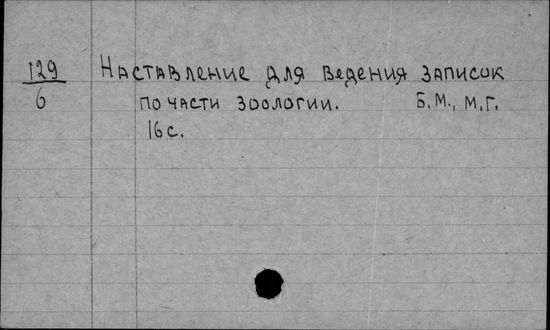 129 Наставление для ведения записок
6 по части зоологии. Б.М., М.Г.
16 с.